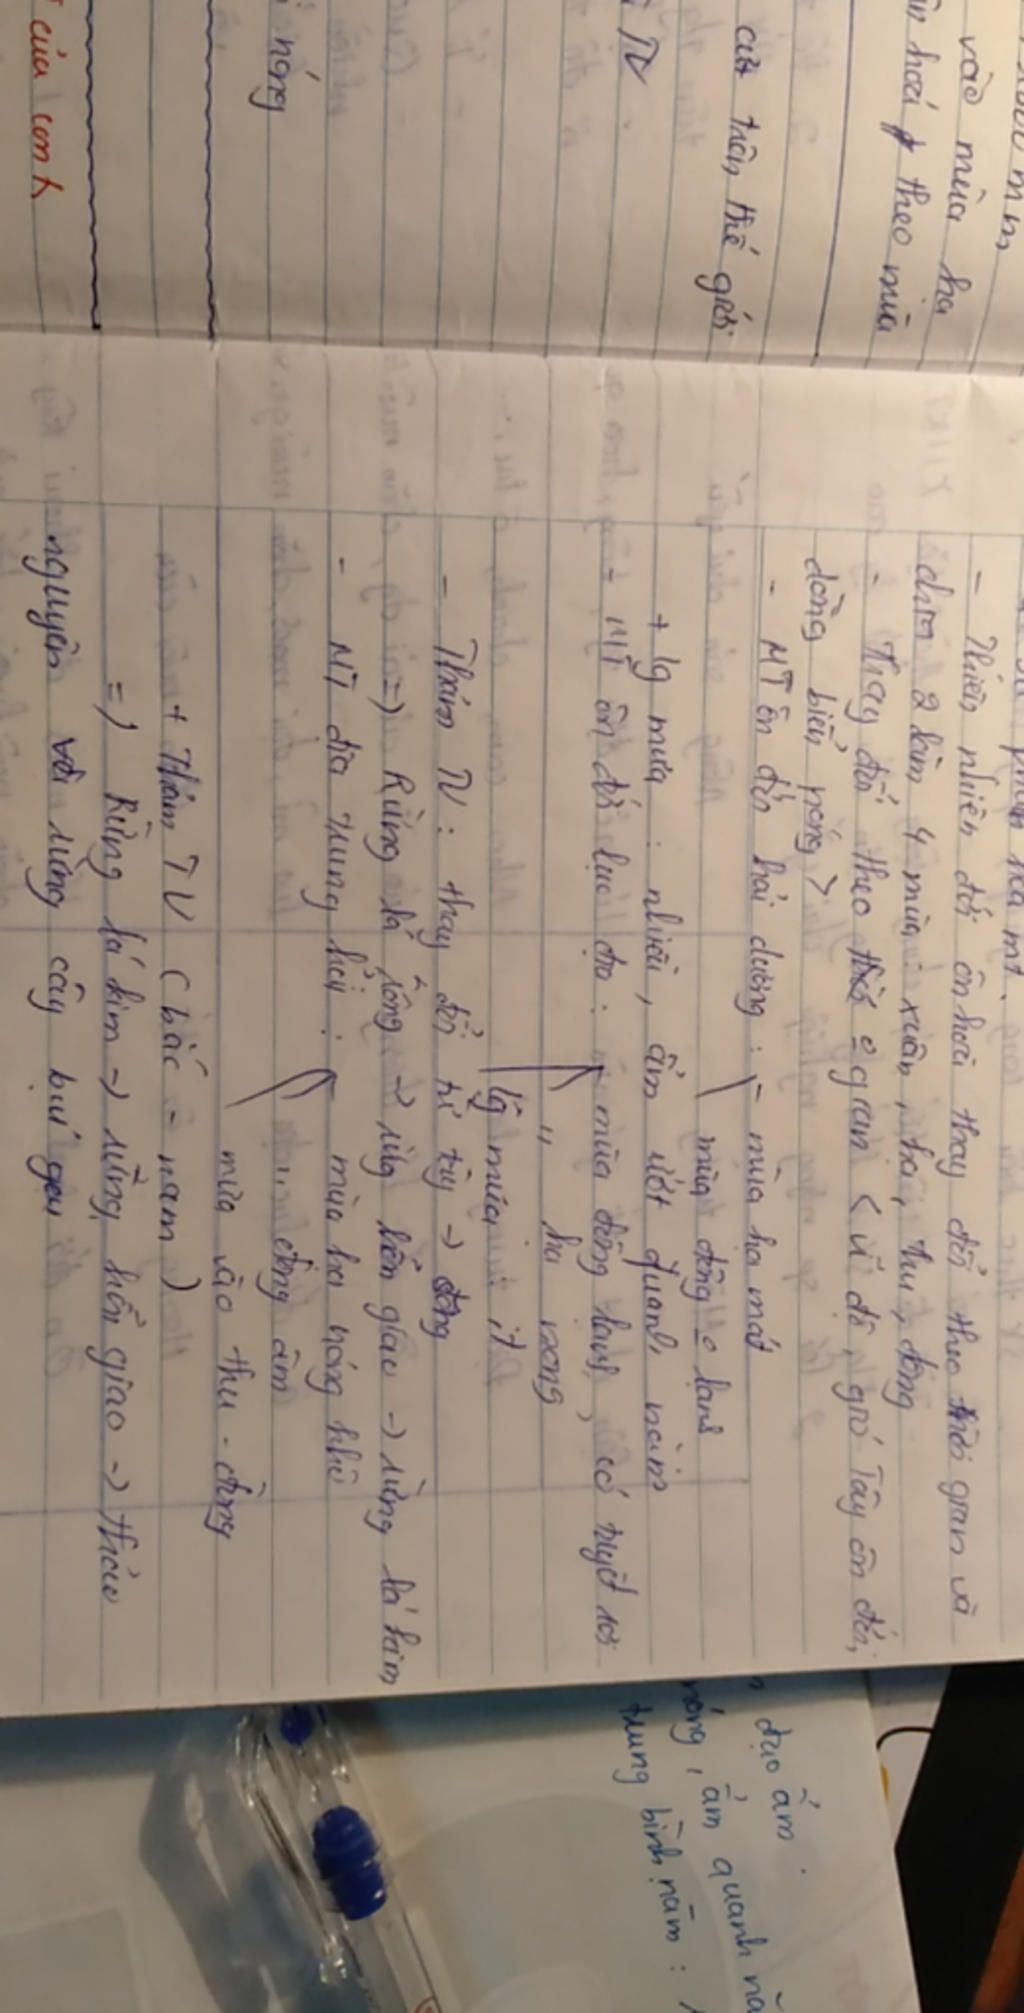 vào mùa hạ
theo mùa
cực trên thế giới
TV
nóng
của con
- Thiên nhiên đới ôn hoà thay đổi theo thời gian và
chia 2 làm 4 mùa: xuân, hạ, thu, đông
- Thay đổi theo gian < vĩ độ, gió Tây ôn đới,
dòng biển nóng >
- MT ôn đới hải dương : - mùa hạ mát
mùa đông lạnh
+ lg mưa : nhiều, ẩm ướt quanh năm
- MT ôn đới lục địa : mùa đông lạnh, có tuyết rơi
" hạ nóng
lg mưa ít
- Thảm TV : thay đổi từ tây → đông
=) Rừng lá rộng → rừng hỗn giao → rừng lá kim
- MT địa trung hải : mùa hạ nóng khô
" đông ấm
mưa vào thu - đông
+ Thảm TV ( bắc - nam )
=) Rừng lá kim → rừng hỗn giao → thảo
nguyên và rừng cây bụi gai
đạo ẩm
nóng, ẩm quanh nă
trung bình năm :